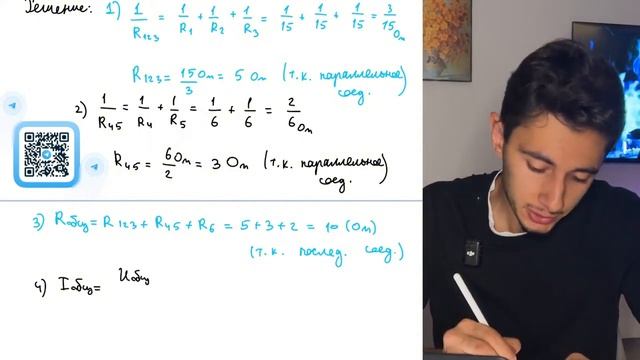 Решение: 1) 1/R₁₂₃ = 1/R₁ + 1/R₂ + 1/R₃ = 1/15 + 1/15 + 1/15 = 3/15 Ом
R₁₂₃ = 15 Ом/3 = 5 Ом (т.к. параллельное
соед.)
2) 1/R₄₅ = 1/R₄ + 1/R₅ = 1/6 + 1/6 = 2/6 Ом
R₄₅ = 6 Ом/2 = 3 Ом (т.к. параллельное
соед.)
3) Rобщ = R₁₂₃ + R₄₅ + R₆ = 5 + 3 + 2 = 10 (Ом)
(т.к. послед. соед.)
4) Iобщ = Uобщ